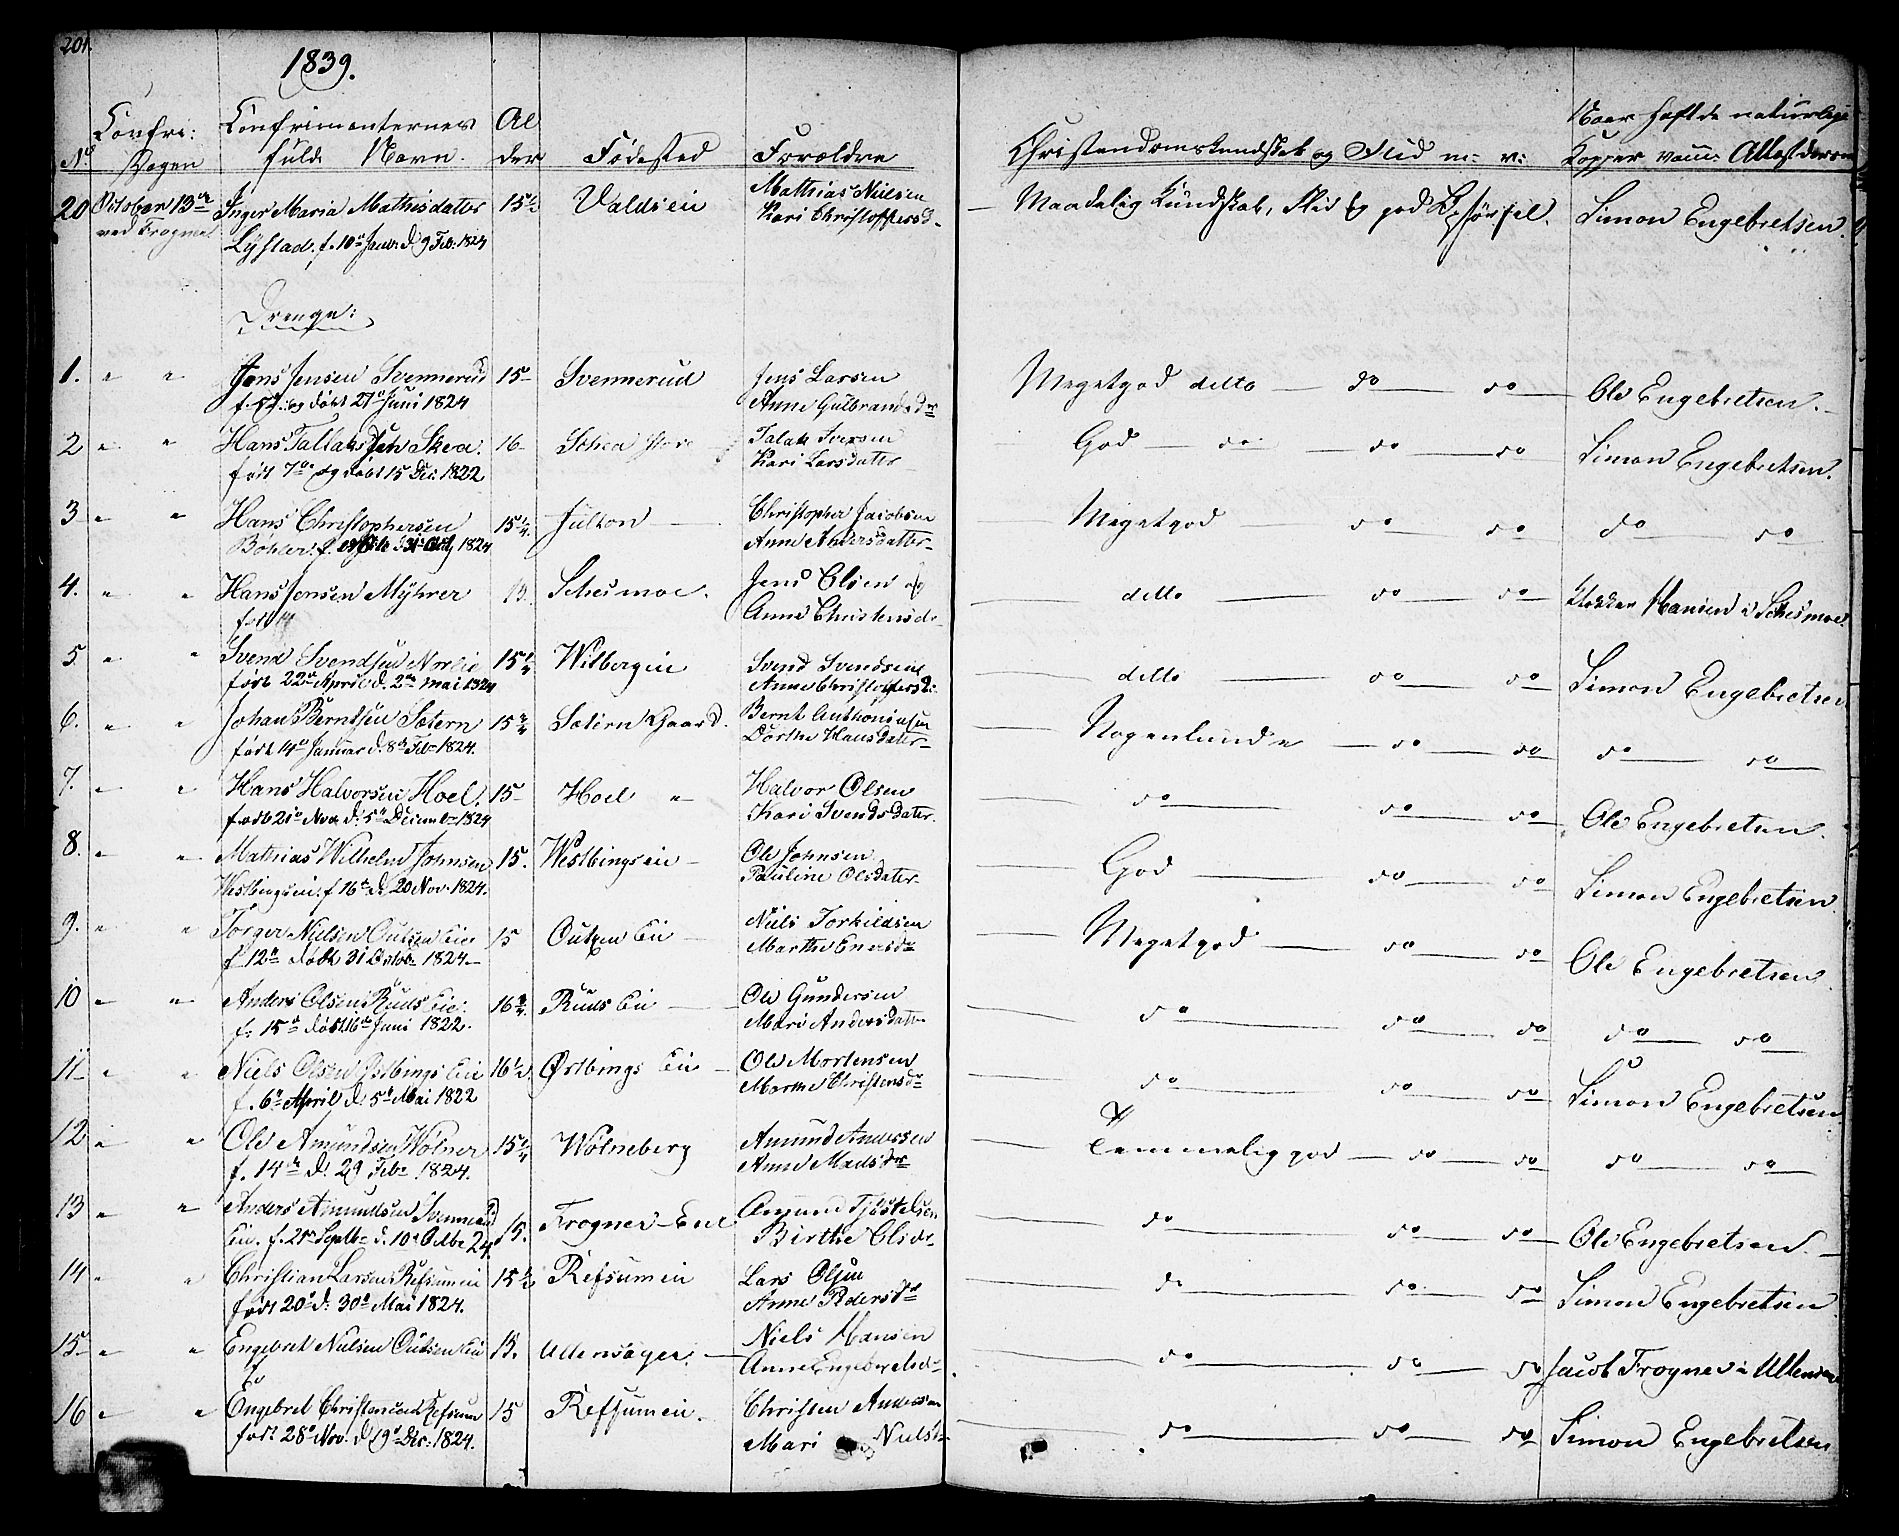 201.
1839.
No Confir: Dagen Confirmanternes fulde Navn. Alder Fødested Forældre Christendomskundskab og Flid m: v: Naar haft de naturlige Kopper Attest derom
20 October 13de ved Frogner Inger Maria Mathisdatter 15½ Valdseie Mathias Nielsen Maadelig Kundskab, Flid og god Opførsel. Simon Engebretsen.
Lystad, f. 10de Janr. d. 9 Feb. 1824 Kari Christoffersd.
Drenge:
1. " " Jens Jensen Svennerud 15 Svennerud Jens Larsen Megetgod ditto do do Ole Engebretsen.
f. og døbt 27de Juni 1824 Anne Gulbrandsdr
2 " " Hans Tallaksen Skea. 16 Schea store Talak Iversen God do do do Simon Engebretsen.
født 7de og døbt 15 Dec. 1822 Kari Larsdater
3 " " Hans Christophersen 15¼ Julton Christopher Jacobsen Megetgod do do do do
Bøhler. f. 1824 Anne Andersdatter
4. " " Hans Jensen Myhrer 15. Schesmoe. Jens Olsen og ditto do do Klokker Hansen i Schesmoe.
Anne Christensdr
5 " " Svend Svendsen Nordlie 15¼ Wilbergeie Svend Svendsen ditto do do Simon Engebretsen
født 22de April d. 2den Mai 1824 Anne Christoffersdr
6. " " Johan Berntsen Sætern 15¾ Sætern Gaard. Bernt Anthoniusen Nogenlunde do do do do
født 14de Januar d. 8de Feb. 1824. Dorthe Hansdater
7. " " Hans Halvorsen Hoel. 15 Hoel " Halvor Olsen do do do Ole Engebretsen.
født 21de Nov. d. 5te December 1824 Kari Svendsdater.
8. " " Mathias Wilhelm Johnsen 15. Westbingseie Ole Johnsen God do do Simon Engebretsen.
Westbingseie. f. 16de d. 20 Nov. 1824. Pauline Olsdater
9. " " Torger Nielsen Outzen Eie 15 Outzen Eie Niels Torkildsen Megetgod do do Ole Engebretsen.
f. 12te døbt 31 Octobr 1824. Marthe Enersdr
10 " " Anders Olsen Ruds Eie. 16¾ Ruds Eie Ole Gundersen do do do do do
f. 15de døbt 16de Juni 1822. Mari Andersdatter
11 " " Niels Olsen Østbings Eie 16½. Østbings Eie Ole Mortensen do do do Simon Engebretsen
f. 6te April d. 5te Mai 1822 Marthe Christensdr
12 " " Ole Amundsen Wølner 15¼ Wølneberg Amund Andersen Temmelig god do do do do
f. 14de d. 29 Febr. 1824. Anne Madsdr
13 " " Anders Amundsen Svennerud 15. Frogner-Eie Amund Tjøstelsen do do do Ole Engebretsen.
Eie. f. 25de Septbr d. 10de Octbr 24. Birthe Olsdr
14 " " Christian Larsen Refsumeie 15½ Refsumeie Lars Olsen do do do Simon Engebretsen
født 20de d. 30de Mai 1824. Anne Pedersdr
15 " " Engebret Nielsen Outsen Eie 15. Ullensager. Niels Hansen do do do Jacob Frogner i Ullensa
f. Anne Engebretsdr
16 " " Engebret Christensen Refsum 15 Refsumeie. Christen Andersen do do do Simon Engebretsen
født 28de Nov. d. 19de Dec. 1824. Mari Nielsdr